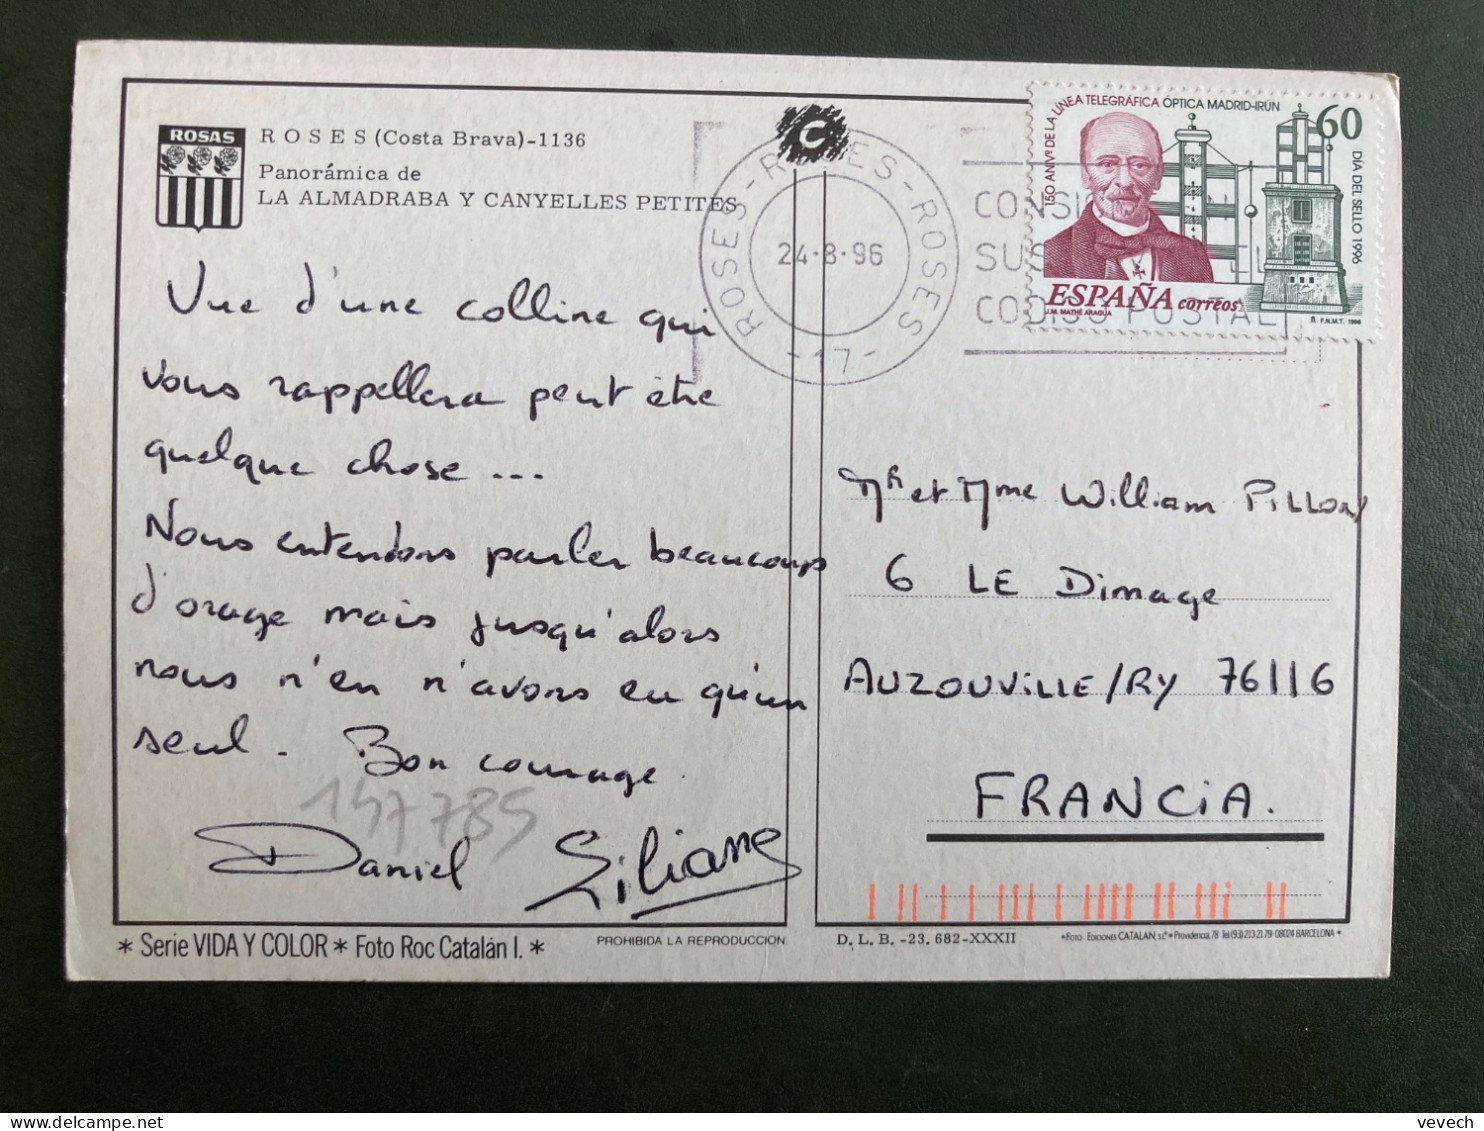 ROSAS
ROSES (Costa Brava)-1136
Panorámica de
LA ALMADRABA Y CANYELLES PETITES
Vue d'une colline qui
vous rappellera peut être
quelque chose ...
Nous entendons parler beaucoup
d'orage mais jusqu'alors
nous n'en n'avons eu qu'un
seul. Bon courage.
147785
Daniel Liliane
* Serie VIDA Y COLOR * Foto Roc Catalán I. *
PROHIBIDA LA REPRODUCCION
C
ROSES - ROSES - ROSES - ROSES
24-8-96
-17-
CONSIG
SUS
CODIGO POSTAL
150 ANIVº DE LA LÍNEA TELEGRÁFICA ÓPTICA MADRID-IRÚN
60
DÍA DEL SELLO 1996
ESPAÑA correos
J.M. MATHÉ ARAGUA
F.N.M.T. 1996
Mr et Mme William PILLON
6 LE Dimage
AUZOUVILLE/RY 76116
FRANCIA.
D. L. B. -23. 682-XXXII
*FOTO - EDICIONES CATALAN, S.Cª * Providencia, 78 Tel (93) 213 21 79 - 08024 BARCELONA *
vevech